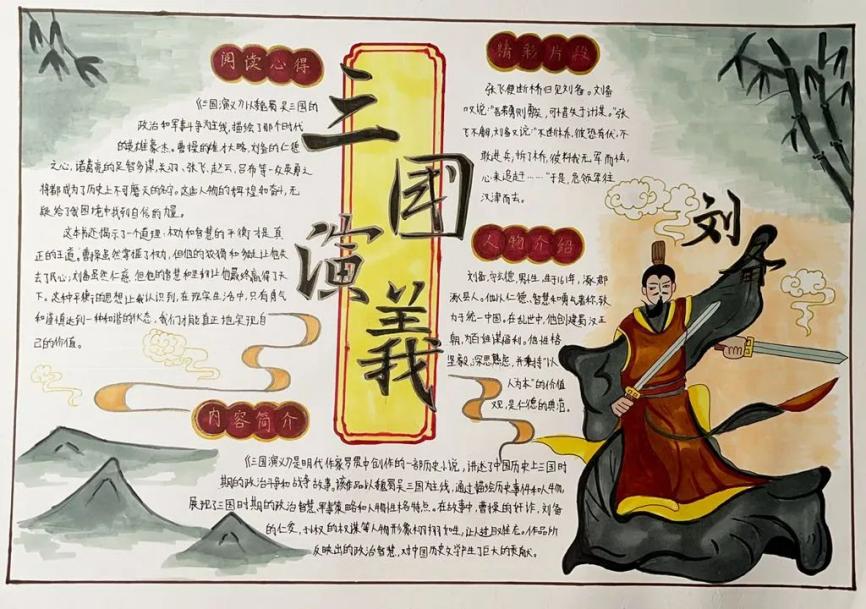 三國演義
刘
阅读心得
《三国演义》以魏蜀吴三国的
政治和军事斗争为主线,描绘了那个时代
的英雄豪杰。曹操的雄才大略,刘备的仁德
之心,诸葛亮的足智多谋,关羽、张飞、赵云、吕布等一众英勇之
将都成为了历史上不可磨灭的名字。这些人物的辉煌和奋斗,无
疑给了我困境中找到自信的力量。
这本书还揭示了一个道理:权力和智慧的平衡才是真
正的王道。曹操虽然掌握了权力,但他的狡猾和
去了民心;刘备虽然仁慈,但他的智慧和坚韧让他最终赢得了天
下。这种平衡的思想让我认识到,在现实生活中,只有勇气
和谨慎达到一种和谐的状态,我们才能真正地实现自
己的价值。
精彩片段
张飞便断桥回见刘备。刘备
叹说:“吾弟勇则勇矣,可惜失于计谋。”张
飞不解,刘备又说:“不断桥,彼恐有伏,不
敢进兵;拆了桥,彼料我无军而怯,
心来追赶……”于是,急领军往
汉津而去。
人物介绍
刘备,字玄德,男性,生于161年,涿郡
涿县人。他以仁德、智慧和勇气著称,致
力于统一中国。在乱世中,他创建蜀汉王
朝,为百姓谋福利。他性格
坚毅、深思熟虑,并秉持“以
人为本”的价值
观,是仁德的典范。
内容简介
《三国演义》是明代作家罗贯中创作的一部历史小说,讲述了中国历史上三国时
期的政治斗争和战争故事。该作品以魏蜀吴三国为主线,通过描绘历史事件和人物,
展现了三国时期的政治智慧、军事策略和人物性格特点。在故事中,曹操的奸诈、刘备
的仁爱、孙权的权谋等人物形象栩栩如生,让人过目难忘。作品所
反映出的政治智慧,对中国历史文学产生了巨大的贡献。